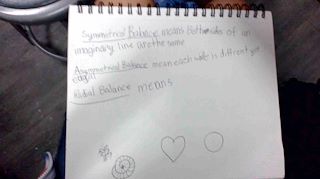 Symmetrical Balance means Both sides of an
imaginary line are the same
Asymmetrical Balance mean each side is different yet
equal
Radial Balance means